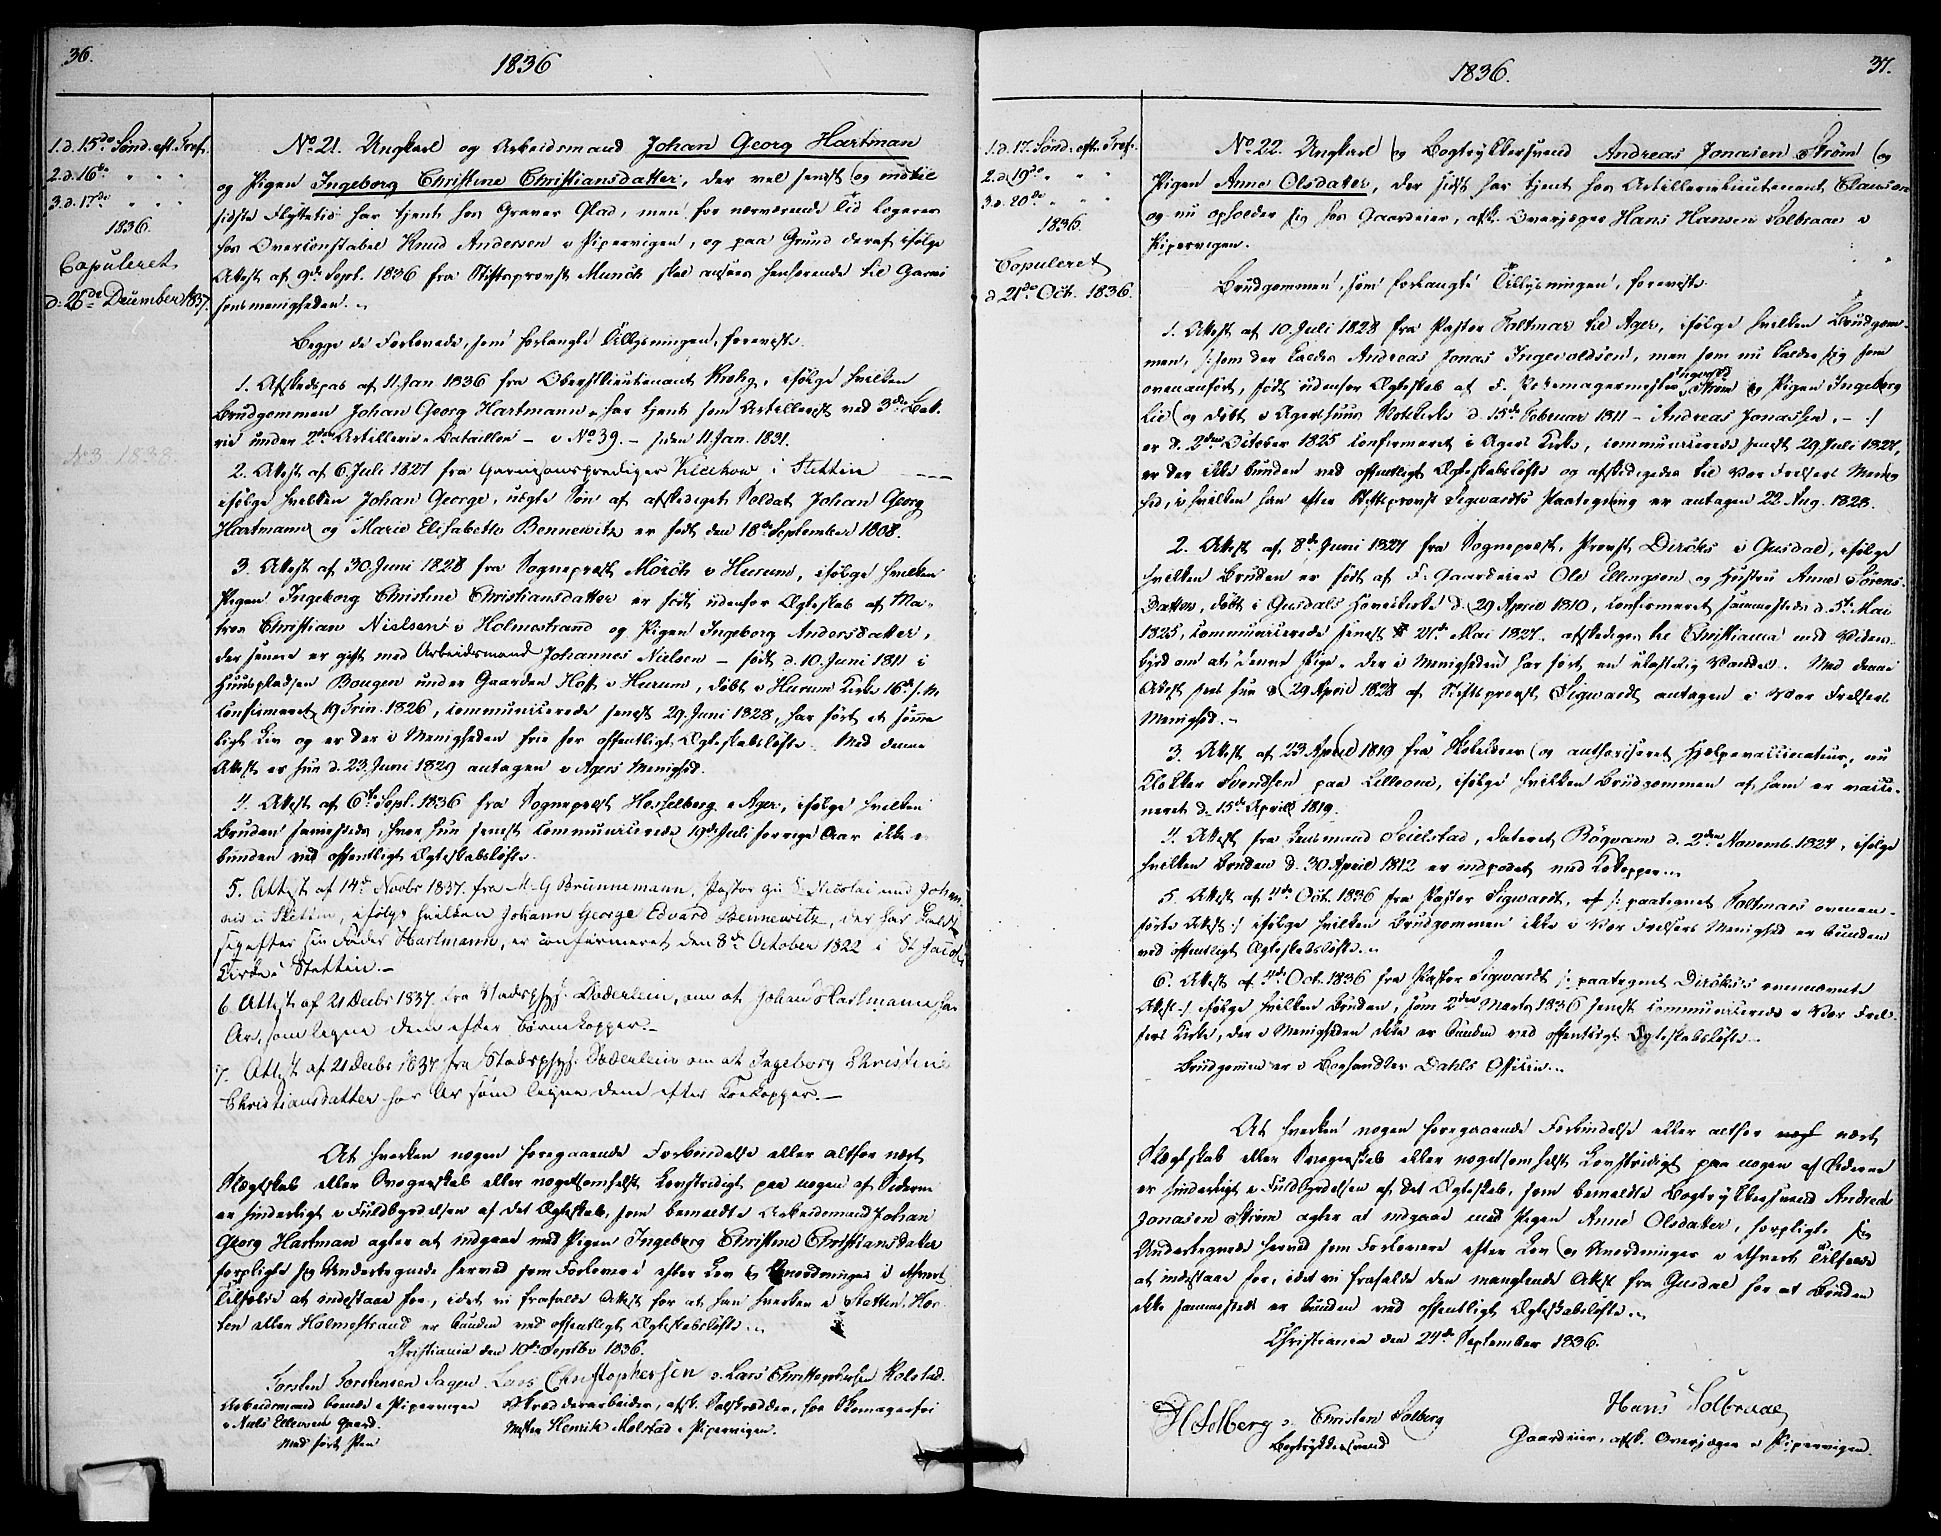 36.
1836
1. d. 15de Sønd. eft. Tref.
2. d. 16de " " "
3. d. 17de " " "
1836.
Copuleret
d. 26de December 1837.
No 3 1838.
No 21. Ungkarl og Arbeidsmand Johan Georg Hartman
og Pigen Ingeborg Christine Christiansdatter, der vel senst og indtil
sidste Flyttetid har tjent hos Graver Glad, men for nærværende Tid logerer
hos Overconstabel Knud Andersen i Pipervigen, og paa Grund deraf ifølge
Attest af 9de Sept. 1836 fra Stiftsprovst Munch skal ansees henhørende til Garni
sonsmenigheden.
Begge de Forlovede, som forlangte Tillysningen, foreviste.
1. Afskedspas af 11 Jan 1836 fra Oberstlieutenant Krohg, ifølge hvilken
Brudgommen Johan Georg Hartmann har tjent som Artillerist ved 3die Bat-
teri under 2den Artillerie-Bataillon – No 39. – siden 11 Jan. 1831.
2. Attest af 6 Juli 1827 fra Garnisonsprædiger i Stettin
ifølge hvilken Johan George, uægte Søn af afskediget Soldat Johan Georg
Hartmann og Marie Elisabeth Bennewitz er født den 18de September 1808.
3. Attest af 30 Juni 1828 fra Sognepræst Mörch i Hurum, ifølge hvilken
Pigen Ingeborg Christine Christiansdatter er født udenfor Ægteskab af Ma-
tros Christian Nielsen i Holmestrand og Pigen Ingeborg Andersdatter,
der senere er gift med Arbeidsmand Johannes Nielsen – født d. 10 Juni 1811 i
Huuspladsen Bougen under Gaarden Hoff i Hurum, døbt i Hurum Kirke 16de s. M.
Confirmeret 19 Trin. 1826, communicerede senest 29 Juni 1828, har ført et sømme
ligt Liv og er der i Menigheden frie for offentligt Ægteskabsløfte. Med denne
Attest er hun d. 23 Juni 1829 antagen i Agers Menighed.
4. Attest af 6te Sept. 1836 fra Sognepræst Hesselberg i Ager, ifølge hvilken
Bruden sammesteds, hvor hun senest communicerede 19de Juli forrige Aar ikke er
bunden ved offentligt Ægteskabsløfte.
5. Attest af 14de Novbr 1837. fra M. G Brunnemann, Pastor zu St Nicolai und Johan
nis i Stettin, ifølge hvilken Johann George Edvard Bennewitz, der har kaldt
sig efter sin Fader Hartmann, er confirmeret den 8de October 1822 i St Jacobi
Kirke i Stettin.–
6. Attest af 21 Decbr 1837. fra Stadsphys. Döderlein, om at Johan Hartmann har
Ar, som ligne dem efter Børnekopper.–
7. Attest af 21 Decbr 1837 fra Stadsphys. Döderlein om at Ingeborg Christine
Christiansdatter har Ar som ligne dem efter Koekopper.–
At hverken nogen foregaaende Forbindelse eller altfor nært
Slægtskab eller Svogerskab eller nogetsomhelst Lovstridigt paa nogen af Siderne
er hinderligt i Fuldbyrdelsen af det Ægteskab, som bemeldte Arbeidsmand Johan
Georg Hartman agter at indgaae med Pigen Ingeborg Christine Christiansdatter
forpligte sig Undertegnede herved som Forlovere efter Lov og Anordninger i ethvert
Tilfælde at indestaae for, idet vi frafalde Attest for at han hverken i Stettin, Hor
ten eller Holmestrand er bunden ved offentligt Ægteskabsløfte.
Christiania den 10de Septbr 1836.
Torsten Torstensen Sagen
Lars Christophersen Lars Christophersen Kolstad.
Arbeidsmand boende i Pipervigen
i Niels Ellevsens Gaard
med ført Pen
Skrædderarbeider, afsk. Soldat, hos Skomager
mester Henrik Molstad i Pipervigen.
1836.
37.
1. d. 17. Sønd. eft. Tref.
2. d. 19de " "
3. d. 20de " "
1836.
Copuleret
d. 21de Oct. 1836.
No 22. Ungkarl og Bogtrykkersvend Andreas Jonasen Strøm og
Pigen Anne Olsdatter, der sidst har tjent hos Artillerielieutenant Clausen
og nu opholder sig hos Gaardeier, afsk. Overjæger Hans Hansen Solbraae i
Pipervigen.
Brudgommen, som forlangte Tillysningen, foreviste
1. Attest af 10 Juli 1828 fra Pastor Foltmar til Ager, ifølge hvilken Brudgom-
men, /: som der kaldes Andreas Jonas Ingevoldsen, men som nu kalder sig som
ovenanført, født udenfor Ægteskab af F. Ingevold Strøm og Pigen Ingeborg
Lie og døbt i Agershuus Slotskirke d. 15de Februar 1811 – Andreas Jonassen, – :/
er d. 2den October 1825 confirmeret i Agers Kirke, communicerede senest 29 Juli 1827,
er der ikke bunden ved offentligt Ægteskabsløfte og afskedigedes til Vor Frelsers Menig
hed, i hvilken han efter Stiftsprovst Sigwardts Paategning er antagen 22 Aug. 1828.
2. Attest af 8de Juni 1827 fra Sognepræst, Provst Dircks i Gusdal, ifølge
hvilken Bruden er født af F. Gaardeier Ole Ellingsen og Hustru Anne Sørens-
datter, døbt i Gusdals Hovedkirke d. 29 April 1810, confirmeret sammesteds d. 5te Mai
1825, communicerede senest 24de Mai 1827. afskediges til Christiania med Vidnes-
byrd om at denne Pige, der i Menigheden har ført en ulastelig Vandel. Med denne
Attest sees hun d 29 April 1828 af Stiftsprovst Sigwardt antagen i Vor Frelsers
Menighed.–
3. Attest af 23 April 1819 fra Skolelærer og authoriseret Hjælpevaccinateur, nu
Klokker Svendsen paa Lilleoen, ifølge hvilken Brudgommen af ham er vacci-
neret d. 15de April 1819.
4. Attest fra Lensmand Seielstad, dateret Bøgvam d. 2den Novemb. 1824, ifølge
hvilken Bruden d. 30 April 1812 er indpodet med Kokopper.
5. Attest af 4de Oct. 1836 fra Pastor Sigwardt, /: paategnet Foltmars ovenan-
førte Attest :/ ifølge hvilken Brudgommen ikke i Vor Frelsers Menighed er bunden
ved offentligt Ægteskabsløfte.
6. Attest af 4de Oct. 1836 fra Pastor Sigwardt /: paategnet Dircks's ovennævnte
Attest :/ ifølge hvilken Bruden, som 2den Marts 1836 senest communicerede i Vor Frel-
sers Kirke, der i Menigheden ikke er bunden ved offentligt Ægteskabsløfte.
Brudgommen er i Boghandler Dahls Officin.
At hverken nogen foregaaende Forbindelse eller altfor nært
Slægtskab eller Svogerskab eller nogetsomhelst Lovstridigt paa nogen af Siderne
er hinderligt i Fuldbyrdelsen af det Ægteskab, som bemeldte Bogtrykkersvend Andreas
Jonasen Strøm agter at indgaae med Pigen Anne Olsdatter, forpligte sig
Undertegnede herved som Forlovere efter Lov og Anordninger i ethvert Tilfælde
at indestaae for, idet vi frafalde den manglende Attest fra Gusdal for at Bruden
ikke sammesteds er bunden ved offentligt Ægteskabsløfte.
Christiania den 24de September 1836.
HSolberg Christen Solberg
Bogtrykkersvend
Hans Solbraae
Gaardeier, afsk. Overjæger i Pipervigen.